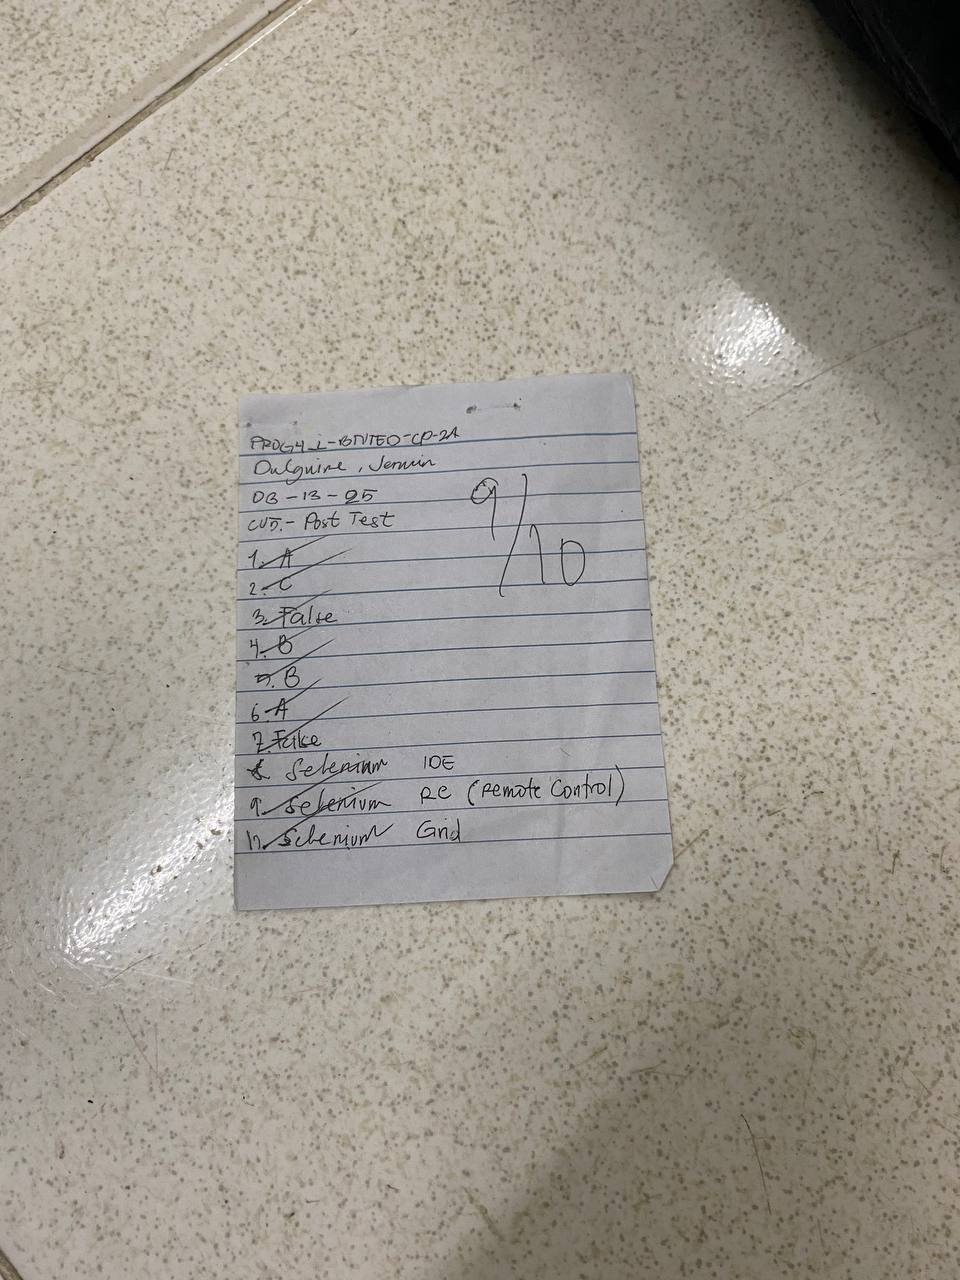 Dulguime, Jerwin
03-13-25
CU5.- Post Test
9/10
1. A
2. C
3. False
4. B
5. B
6. A
7. False
8. Selenium IDE
9. Selenium RC (Remote Control)
10. Selenium Grid